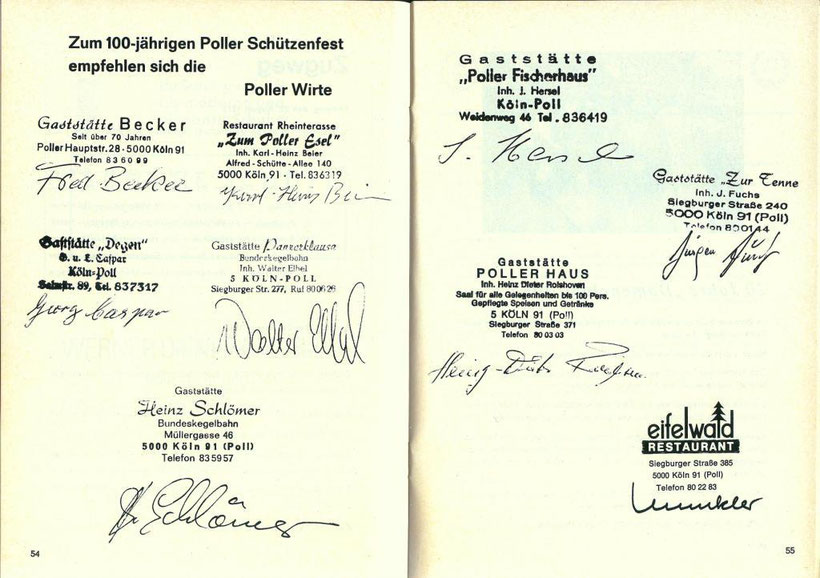 Zum 100-jährigen Poller Schützenfest
empfehlen sich die
Poller Wirte
Gaststätte Becker
Seit über 70 Jahren
Poller Hauptstr. 28 - 5000 Köln 91
Telefon 83 60 99
Fred Becker
Restaurant Rheinterasse
„Zum Poller Esel"
Inh. Karl-Heinz Beier
Alfred - Schütte - Allee 140
5000 Köln 91 - Tel. 836319
Karl-Heinz Beier
Gaststätte „Degen"
G. u. L. Caspar
Köln-Poll
Salmstr. 89, Tel. 837317
Georg Caspar
Gaststätte Pannerklause
Bundeskegelbahn
Inh. Walter Eibel
5 KÖLN-POLL
Siegburger Str. 277, Ruf 80 06 26
Walter Eibel
Gaststätte
Heinz Schlömer
Bundeskegelbahn
Müllergasse 46
5000 Köln 91 (Poll)
Telefon 83 59 57
H. Schlömer
54
Gaststätte
„Poller Fischerhaus"
Inh. J. Hersel
Köln-Poll
Weidenweg 46 Tel. 836419
J. Hersel
Gaststätte „Zur Tenne
Inh. J. Fuchs
Siegburger Straße 240
5000 Köln 91 (Poll)
Telefon 800144
Jürgen
Gaststätte
POLLER HAUS
Inh. Heinz Dieter Rolshoven
Saal für alle Gelegenheiten bis 100 Pers.
Gepflegte Speisen und Getränke
5 KÖLN 91 (Poll)
Siegburger Straße 371
Telefon 80 03 03
Heinz-Dieter
eifelwald
RESTAURANT
Siegburger Straße 385
5000 Köln 91 (Poll)
Telefon 80 22 83
55